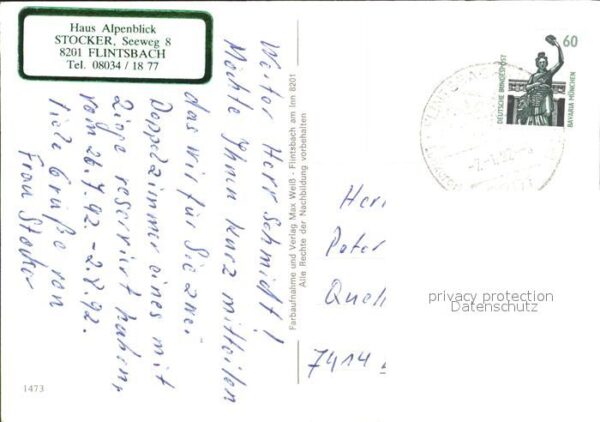 Haus Alpenblick
STOCKER, Seeweg 8
8201 FLINTSBACH
Tel. 08034 / 18 77
Herr Schmidt!
Möchte Ihnen kurz mitteilen
das wir für Sie zwei
Doppelzimmer eines mit
reserviert haben,
vom 26.7.92.-2.8.92.
viele Grüße von
Frau Stocker
1473
Farbaufnahme und Verlag Max Weiß - Flintsbach am Inn 8201
Alle Rechte der Nachbildung vorbehalten
60
DEUTSCHE BUNDESPOST
BAVARIA MÜNCHEN
Herr
Peter
Quell
7414
privacy protection
Datenschutz